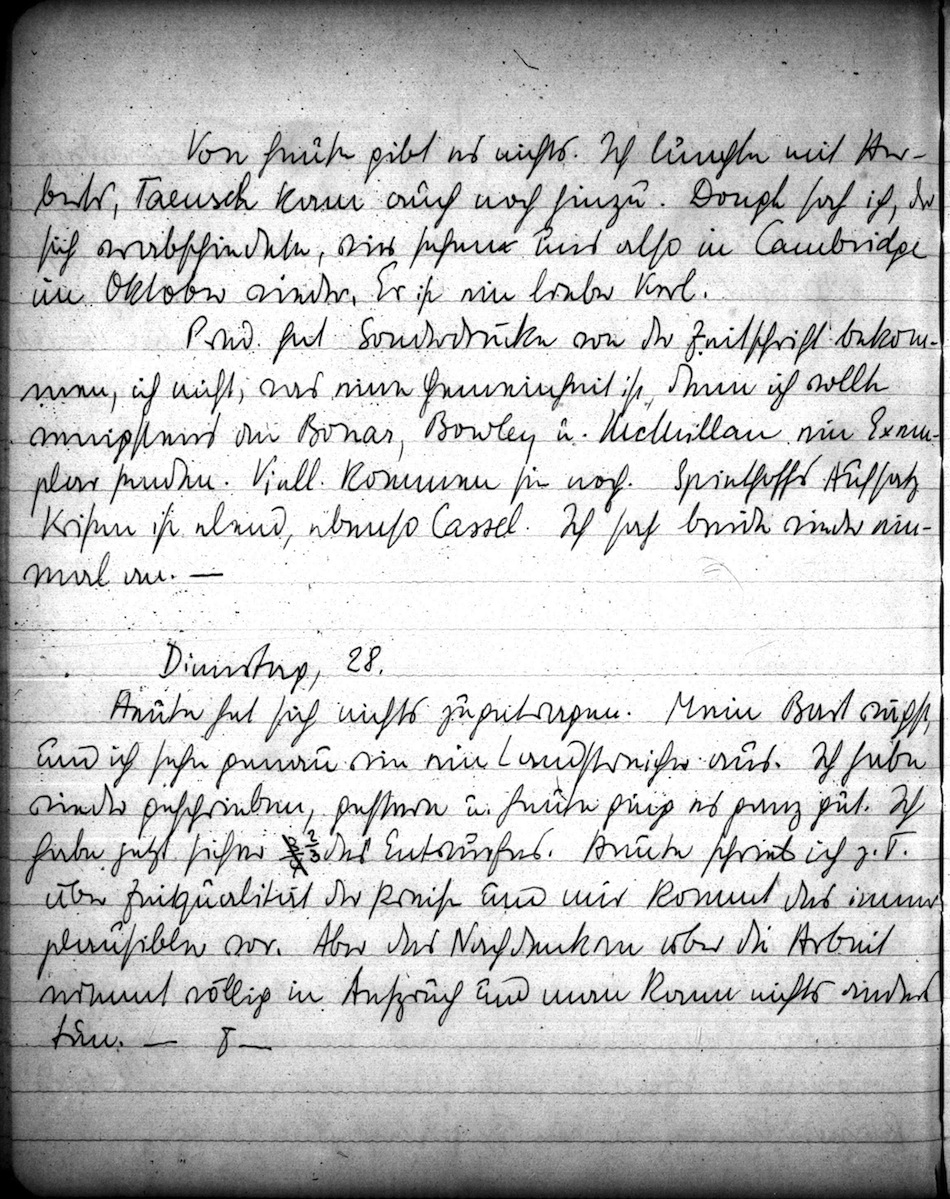 Von heute gibt es nichts. Ich lunchte mit Her-
berts, Taeusch kam auch noch hinzu. Dough sah ich, der
sich verabschiedete, wir sehen uns also in Cambridge
im Oktober wieder. Er ist ein lieber Kerl.
Pred. hat Sonderdrucke von der Zeitschrift bekom-
men, ich nicht, was eine Gemeinheit ist, denn ich wollte
wenigstens an Bonar, Bowley u. McMillan ein Exem-
plar senden. Viell. kommen sie noch. Spiethoffs Aufsatz
Krisen ist elend, ebenso Cassel. Ich sah beide wieder ein-
mal an. —
Dienstag, 28.
Heute hat sich nichts zugetragen. Mein Bart wächst,
und ich sehe genau wie ein Landstreicher aus. Ich habe
wieder geschrieben, gestern u. heute ging es ganz gut. Ich
habe jetzt sicher 2/3 des Entwurfes. Heute schrieb ich z. T.
über Zeitqualität der Preise und mir kommt das immer
plausibler vor. Aber das Nachdenken über die Arbeit
nimmt völlig in Anspruch und man kann nichts anderes
tun. — 8 —